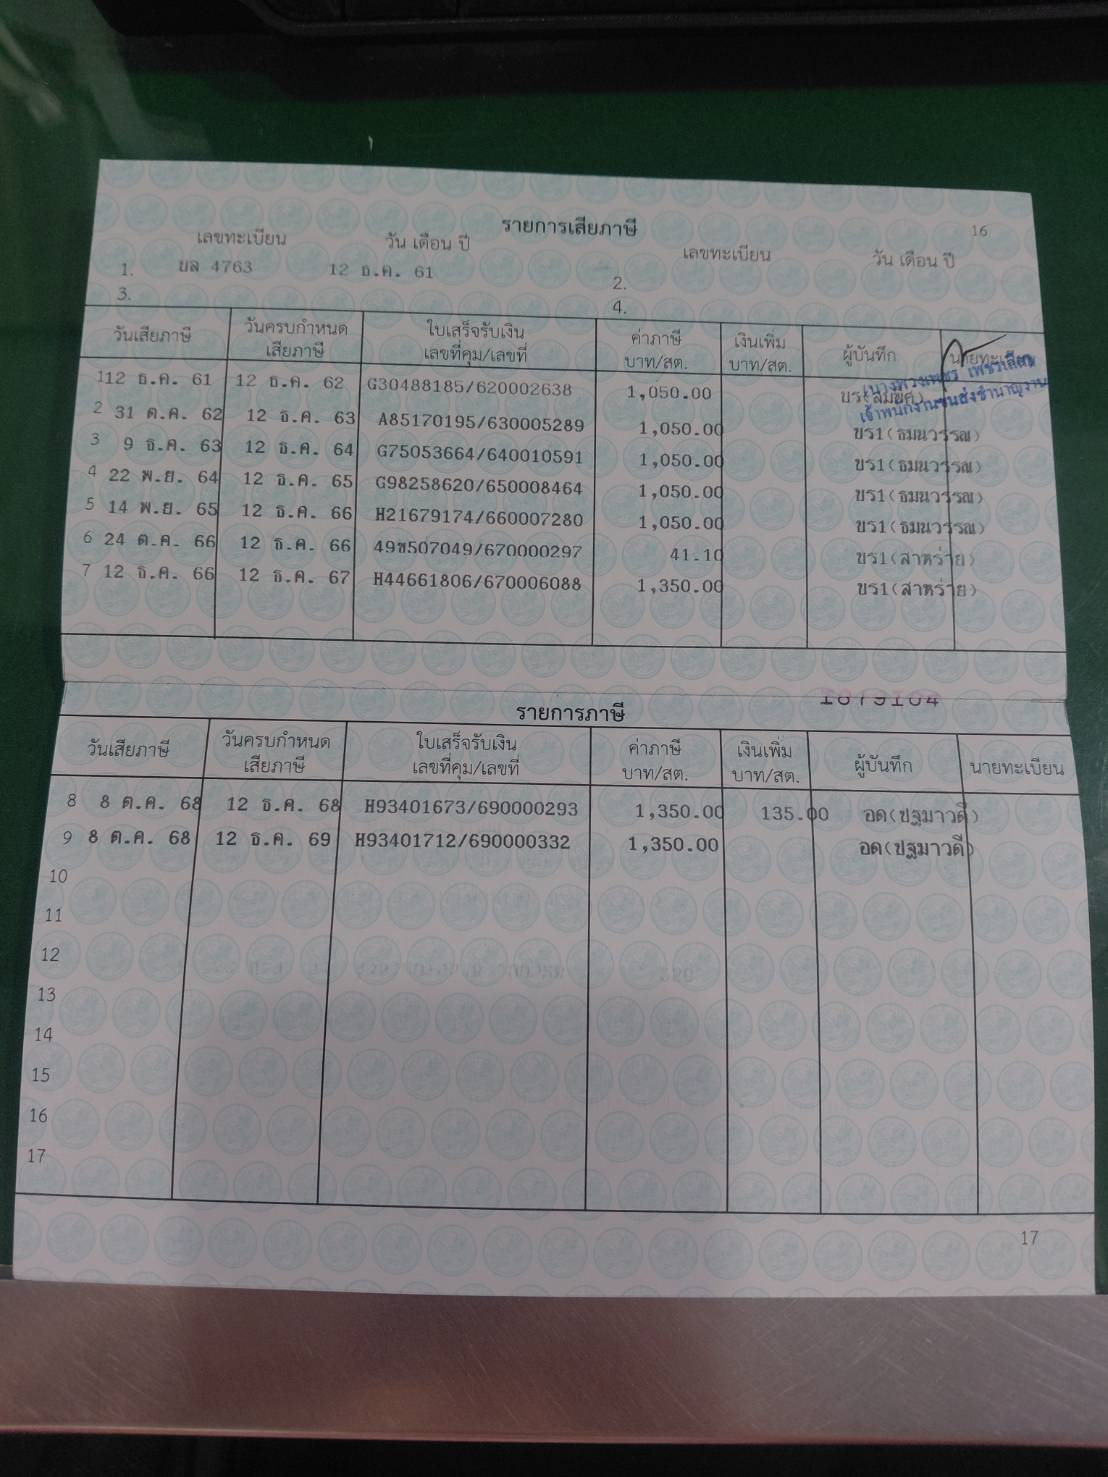 รายการเสียภาษี
16
เลขทะเบียน วัน เดือน ปี เลขทะเบียน วัน เดือน ปี
1. บล 4763 12 ธ.ค. 61 2.
3. 4.
วันเสียภาษี วันครบกำหนดเสียภาษี ใบเสร็จรับเงิน เลขที่คุม/เลขที่ ค่าภาษี บาท/สต. เงินเพิ่ม บาท/สต. ผู้บันทึก นายทะเบียน
เจ้าพนักงานขนส่งชำนาญงาน
1 12 ธ.ค. 61 12 ธ.ค. 62 G30488185/620002638 1,050.00
2 31 ต.ค. 62 12 ธ.ค. 63 A85170195/630005289 1,050.00 ขร1(ธมนวรรณ)
3 9 ธ.ค. 63 12 ธ.ค. 64 G75053664/640010591 1,050.00 ขร1(ธมนวรรณ)
4 22 พ.ย. 64 12 ธ.ค. 65 G98258620/650008464 1,050.00 ขร1(ธมนวรรณ)
5 14 พ.ย. 65 12 ธ.ค. 66 H21679174/660007280 1,050.00 ขร1(ธมนวรรณ)
6 24 ต.ค. 66 12 ธ.ค. 66 49ข507049/670000297 41.10 ขร1(สาหร่าย)
7 12 ธ.ค. 66 12 ธ.ค. 67 H44661806/670006088 1,350.00 ขร1(สาหร่าย)
รายการภาษี
วันเสียภาษี วันครบกำหนดเสียภาษี ใบเสร็จรับเงิน เลขที่คุม/เลขที่ ค่าภาษี บาท/สต. เงินเพิ่ม บาท/สต. ผู้บันทึก นายทะเบียน
8 8 ต.ค. 68 12 ธ.ค. 68 H93401673/690000293 1,350.00 135.00 อด(ปฐมาวดี)
9 8 ต.ค. 68 12 ธ.ค. 69 H93401712/690000332 1,350.00 อด(ปฐมาวดี)
10
11
12
13
14
15
16
17
17